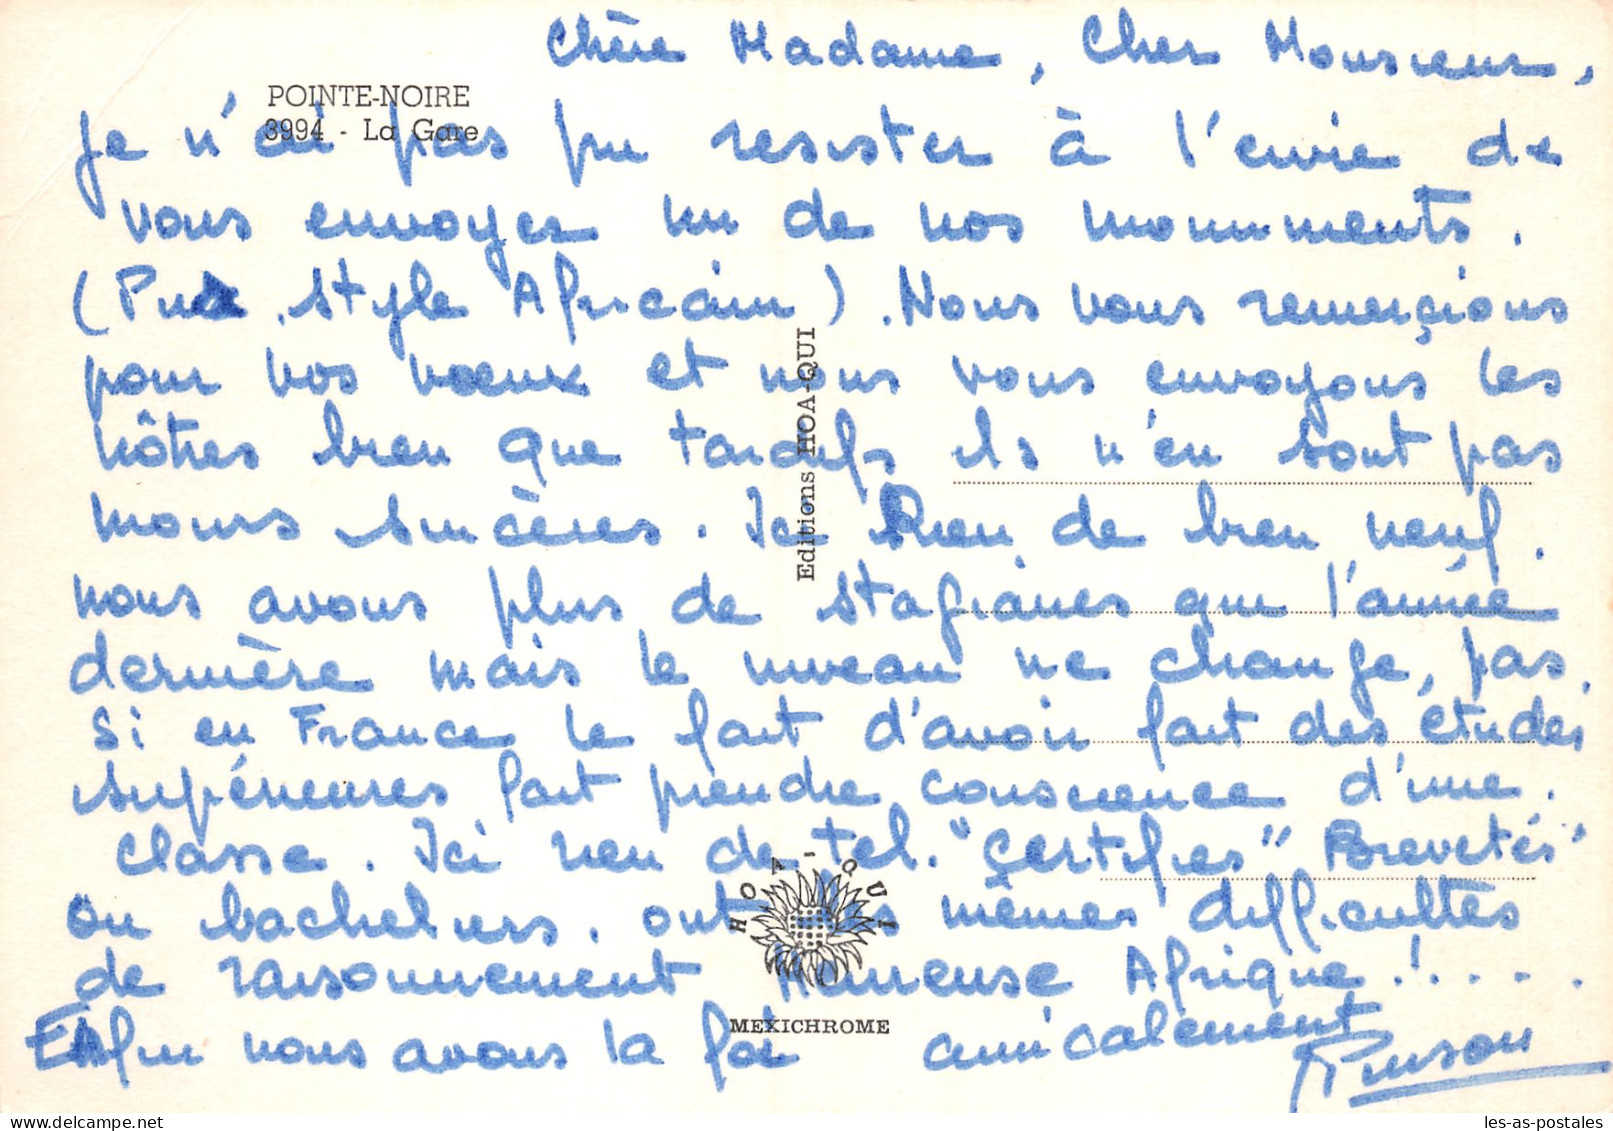 Chère Madame, Cher Monsieur,
POINTE-NOIRE
3994 - La Gare
je n'ai pas pu resister à l'envie de
vous envoyer un de nos monuments.
(Pur style Africain). Nous vous remerçions
pour vos voeux et nous vous envoyons les
nôtres bien que tardifs ils n'en sont pas
moins sincères. Ici Rien de bien neuf.
nous avons plus de stagiaires que l'année
dernière mais le niveau ne change, pas.
Si en France le fait d'avoir fait des études
supérieures fait prendre conscience d'une.
classe. Ici rien de tel. "Certifiés" Brevetés"
ou bacheliers. ont les mêmes difficultés
de raisonnement Heureuse Afrique!....
Enfin nous avons la foi amicalement
Pinson
Editions HOA-QUI
HOA-QUI
MEXICHROME
les-as-postales